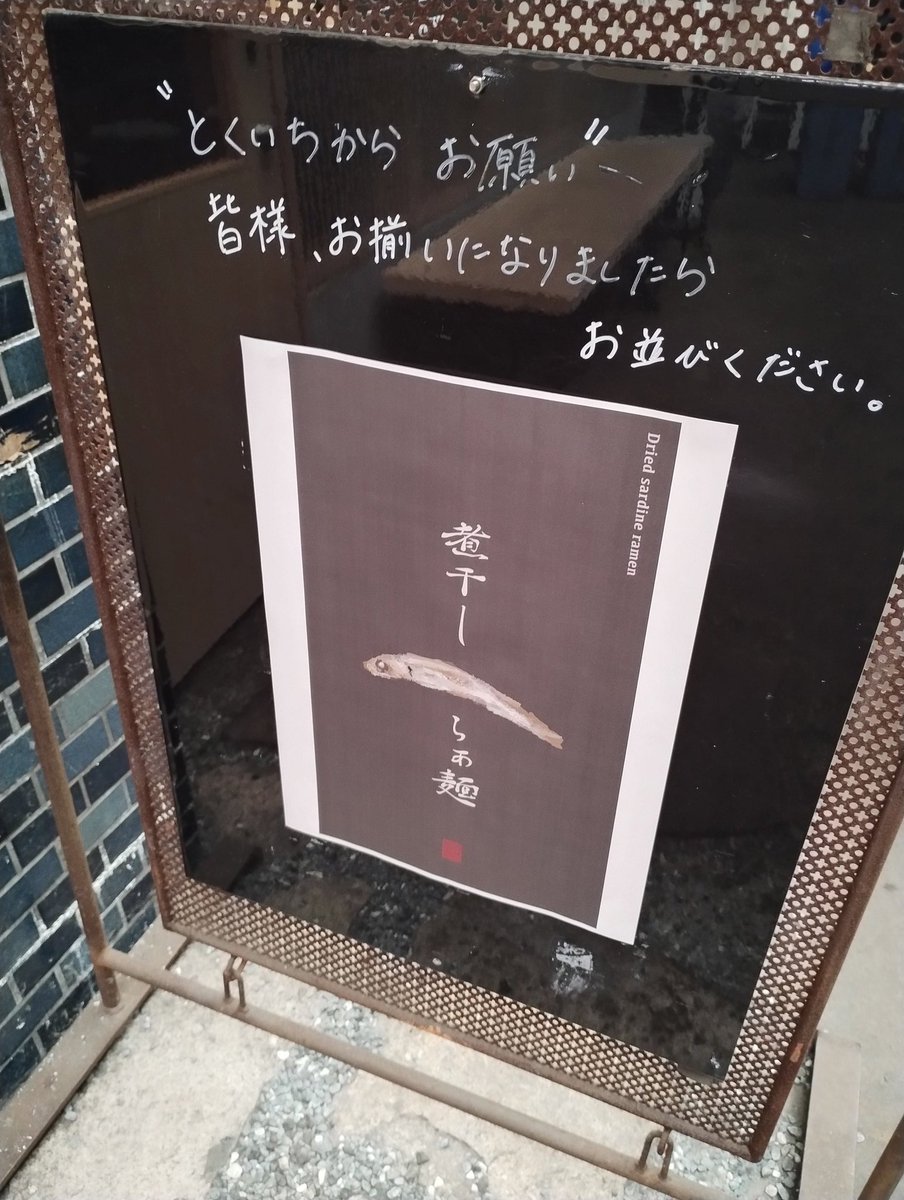 "とくいちからお願い"
皆様、お揃いになりましたら
お並びください。
Dried sardine ramen
煮干し
らぁ麺